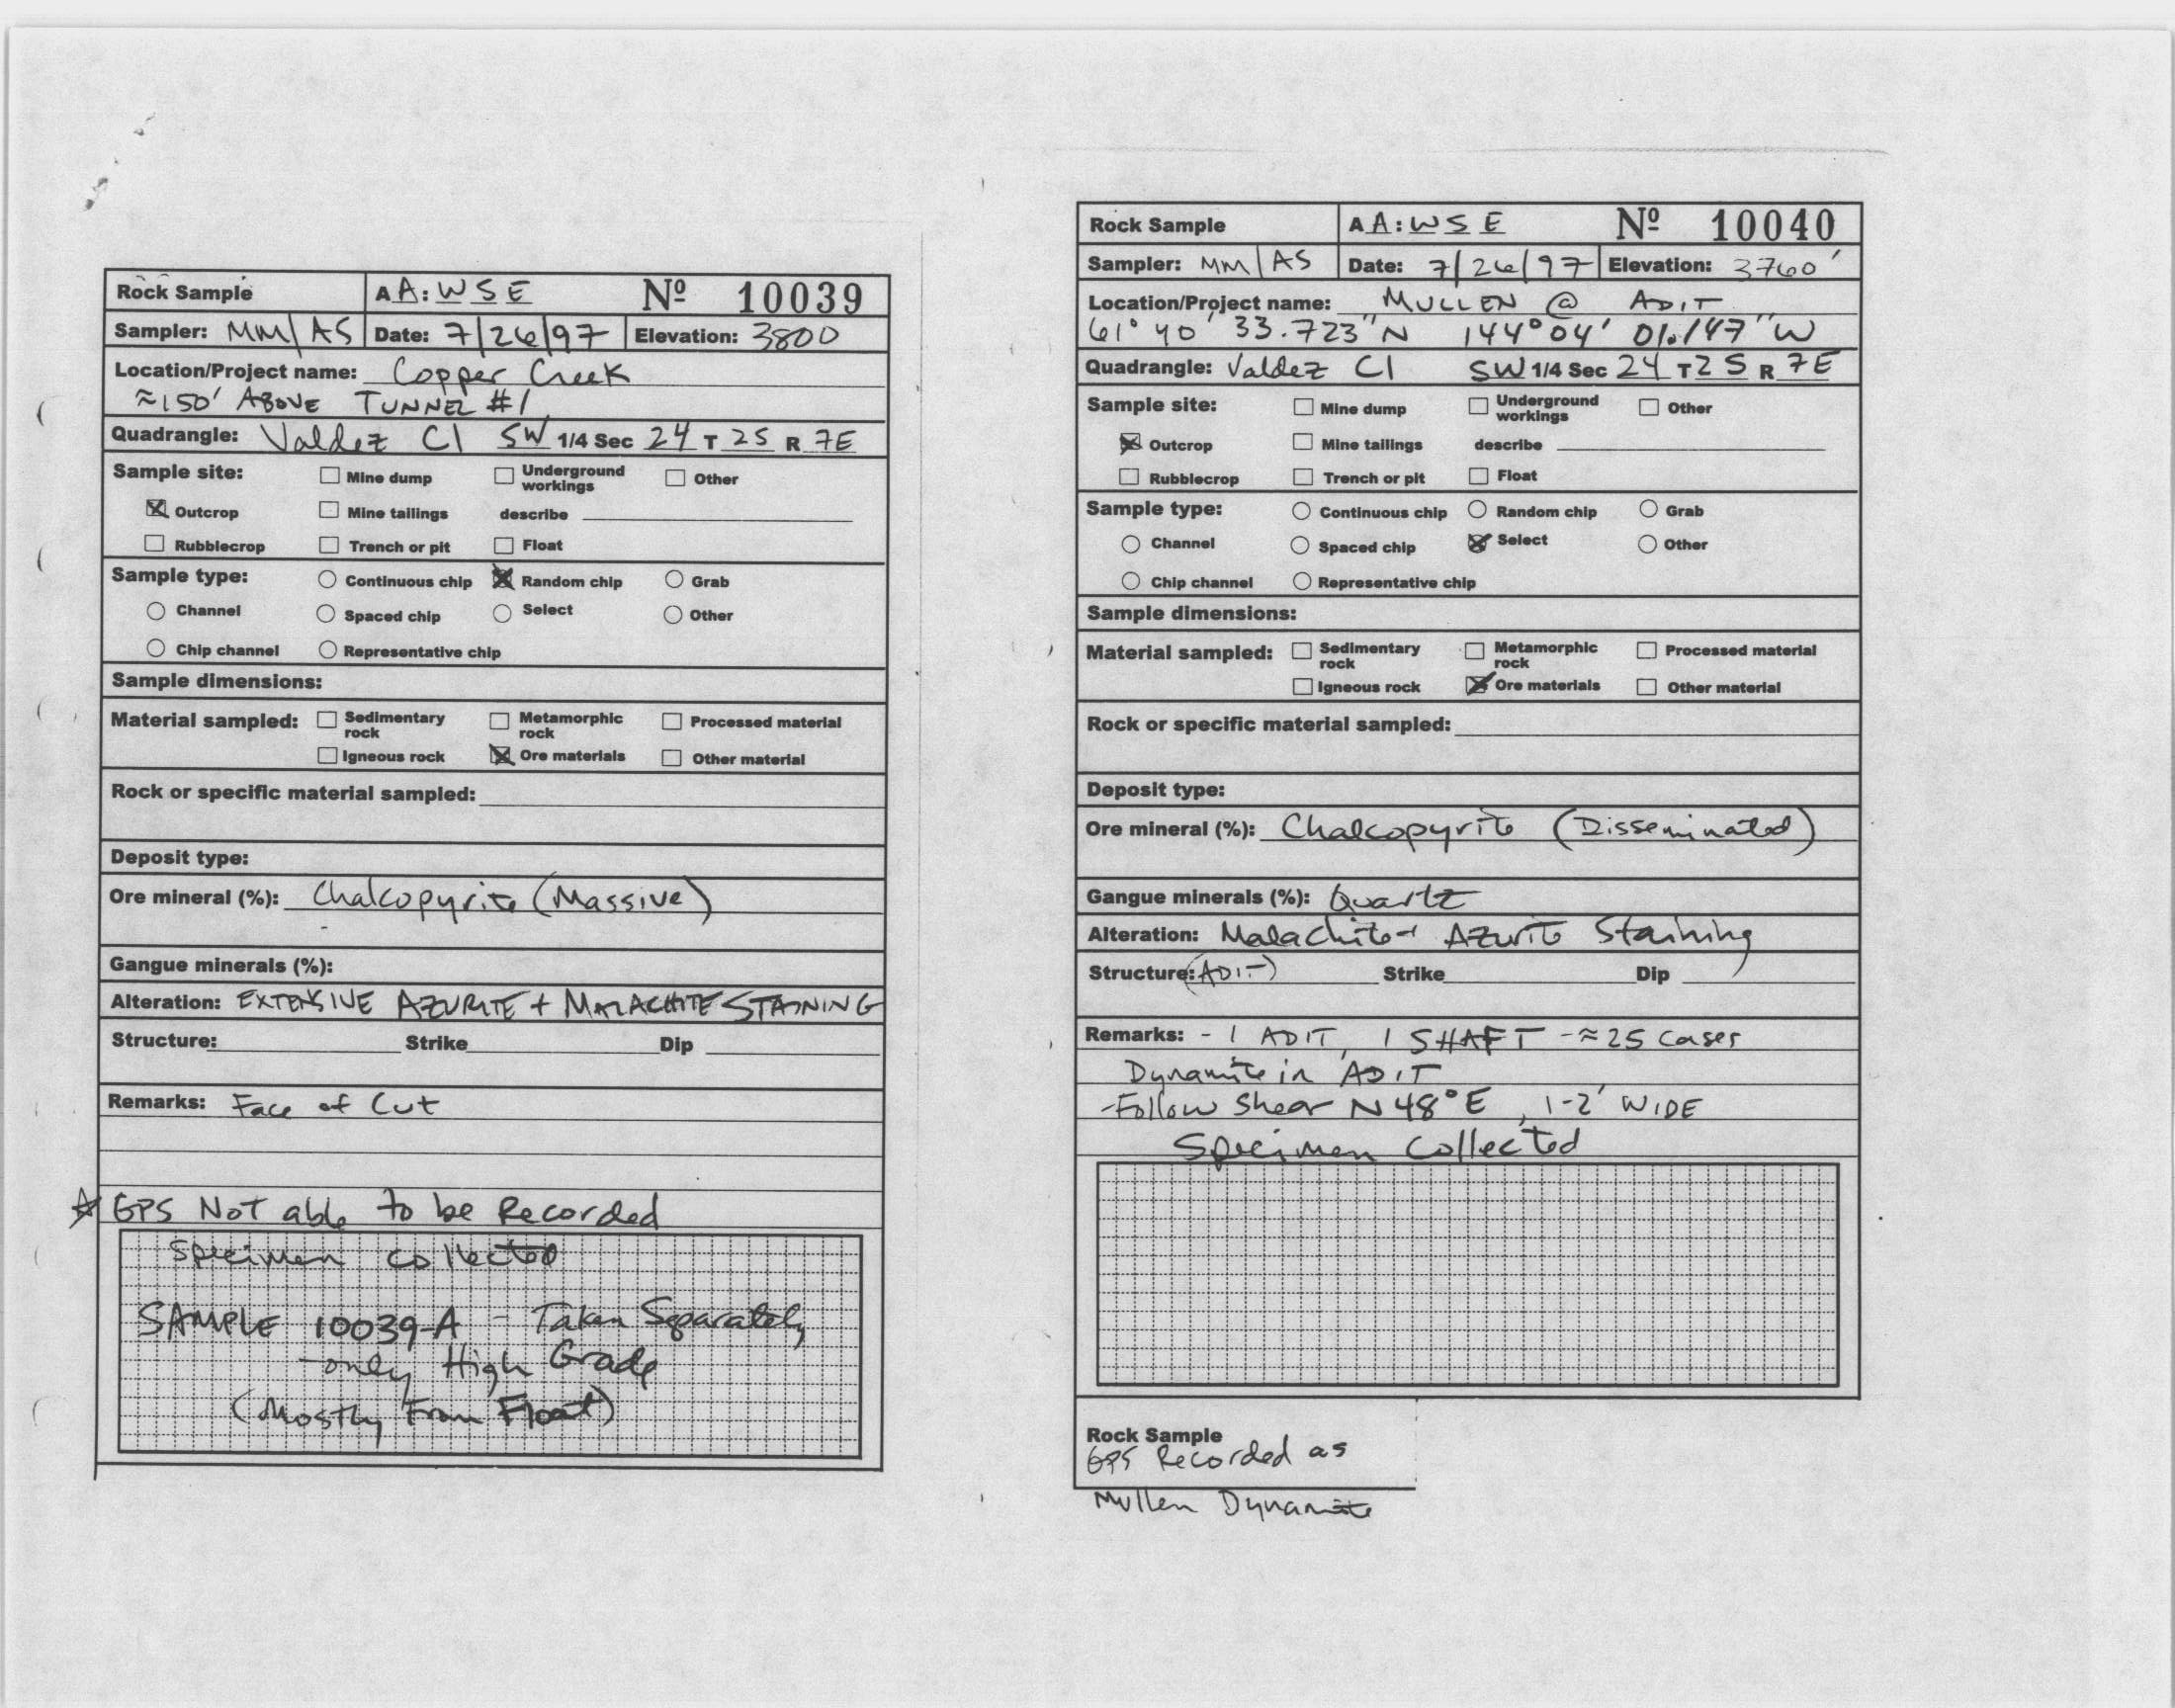 Rock Sample A A: W S E Nº 10039
Sampler: MM/AS Date: 7/26/97 Elevation: 3800
Location/Project name: Copper Creek
≈150' ABOVE TUNNEL #1
Quadrangle: Valdez C1 SW 1/4 Sec 24 T 2S R 7E
Sample site: Mine dump Underground workings Other
Outcrop Mine tailings describe
Rubblecrop Trench or pit Float
Sample type: Continuous chip Random chip Grab
Channel Spaced chip Select Other
Chip channel Representative chip
Sample dimensions:
Material sampled: Sedimentary rock Metamorphic rock Processed material
Igneous rock Ore materials Other material
Rock or specific material sampled:
Deposit type:
Ore mineral (%): Chalcopyrite (Massive)
Gangue minerals (%):
Alteration: EXTENSIVE AZURITE + MALACHITE STAINING
Structure: Strike Dip
Remarks: Face of Cut
GPS Not able to be Recorded
Specimen collected
SAMPLE 10039-A - Taken Separately
-only High Grade
(Mostly From Float)
Rock Sample A A: W S E Nº 10040
Sampler: MM/AS Date: 7/26/97 Elevation: 3760'
Location/Project name: MULLEN @ ADIT
61° 40' 33.723" N 144° 04' 01.147" W
Quadrangle: Valdez C1 SW 1/4 Sec 24 T 2S R 7E
Sample site: Mine dump Underground workings Other
Outcrop Mine tailings describe
Rubblecrop Trench or pit Float
Sample type: Continuous chip Random chip Grab
Channel Spaced chip Select Other
Chip channel Representative chip
Sample dimensions:
Material sampled: Sedimentary rock Metamorphic rock Processed material
Igneous rock Ore materials Other material
Rock or specific material sampled:
Deposit type:
Ore mineral (%): Chalcopyrite (Disseminated)
Gangue minerals (%): Quartz
Alteration: Malachite + Azurite Staining
Structure: (ADIT) Strike Dip
Remarks: - 1 ADIT, 1 SHAFT - ≈25 cases
Dynamite in ADIT
-Follow Shear N 48° E, 1-2' WIDE
Specimen Collected
Rock Sample
GPS Recorded as
Mullen Dynamite